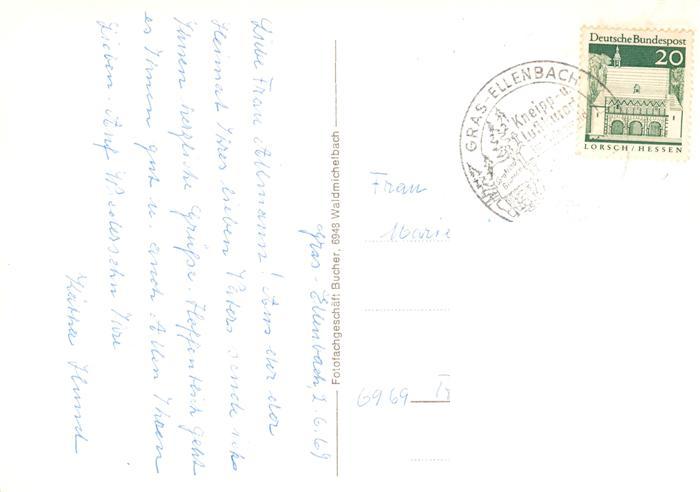 Gras-Ellenbach, 2.6.69
Liebe Frau Allmann! Aus der
Heimat Ihres lieben Vaters sende ich
Ihnen herzliche Grüße. Hoffentlich geht
es Ihnen gut u. auch Allen Ihren
Lieben. Auf Wiedersehn Ihre
Kätha
Fotofachgeschäft Bucher, 6948 Waldmichelbach
GRAS-ELLENBACH
Kneipp-u.
Luft
Deutsche Bundespost
20
LORSCH/HESSEN
Frau
Marie
6969